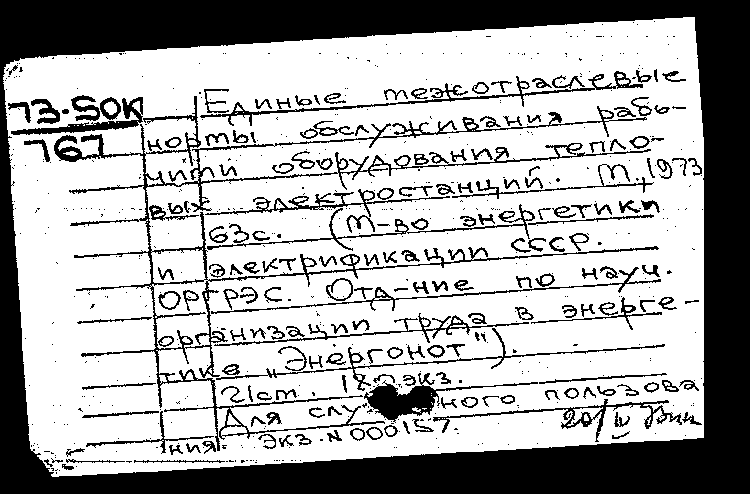 73-50К
767
Единые межотраслевые
нормы обслуживания рабо-
чими оборудования тепло-
вых электростанций. М., 1973
63с. (М-во энергетики
и электрификации СССР.
ОРГРЭС. Отд-ние по науч.
организации труда в энерге-
тике "Энергонот").
21см. экз.
Для пользова
ния. Экз. N 000157.
20/IV